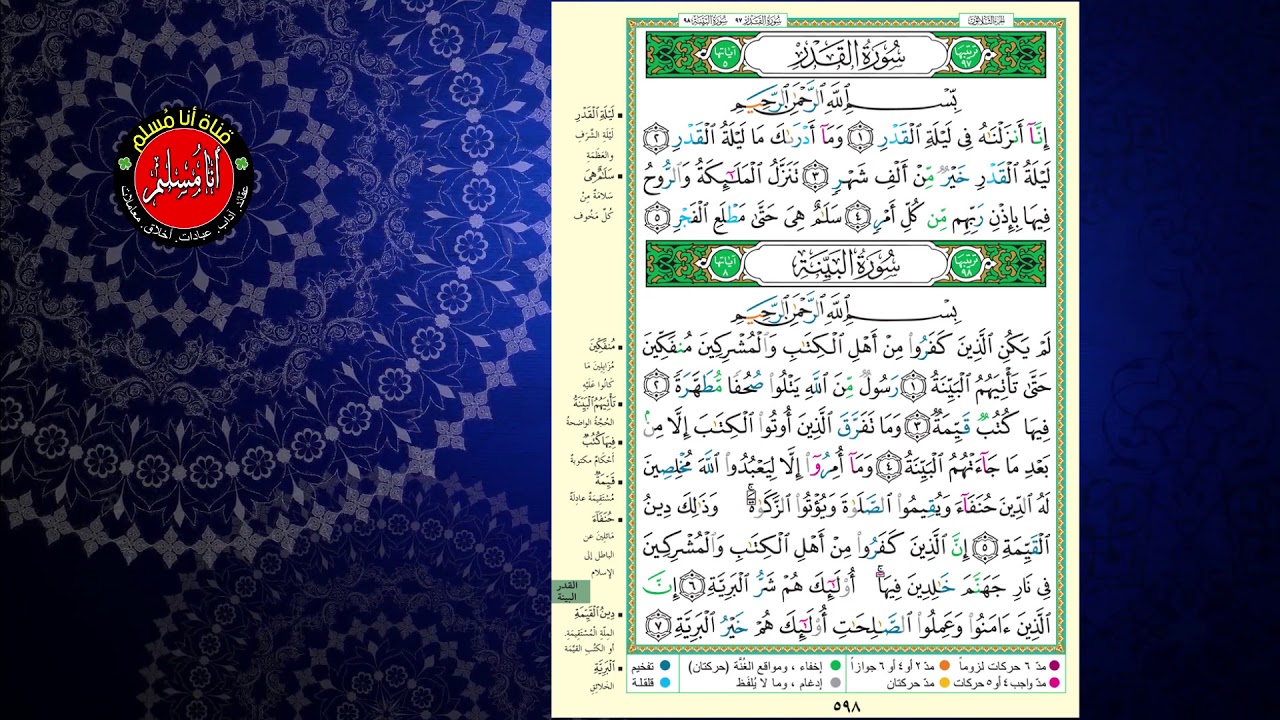 قناة أنا مُسلم
أَنَا مُسْلِم
عقائد. آداب. عبادات. أخلاق. معاملات
الجزء الثلاثون
سُورَةُ القَدْرِ ٩٧ سُورَةُ البَيِّنَةِ ٩٨
ترتيبها ٩٧ سُورَةُ القَدْرِ آياتها ٥
بِسْمِ ٱللَّهِ ٱلرَّحْمَٰنِ ٱلرَّحِيمِ
إِنَّآ أَنزَلْنَٰهُ فِى لَيْلَةِ ٱلْقَدْرِ ١ وَمَآ أَدْرَىٰكَ مَا لَيْلَةُ ٱلْقَدْرِ ٢
لَيْلَةُ ٱلْقَدْرِ خَيْرٌ مِّنْ أَلْفِ شَهْرٍ ٣ تَنَزَّلُ ٱلْمَلَٰٓئِكَةُ وَٱلرُّوحُ
فِيهَا بِإِذْنِ رَبِّهِم مِّن كُلِّ أَمْرٍ ٤ سَلَٰمٌ هِىَ حَتَّىٰ مَطْلَعِ ٱلْفَجْرِ ٥
ترتيبها ٩٨ سُورَةُ البَيِّنَةِ آياتها ٨
بِسْمِ ٱللَّهِ ٱلرَّحْمَٰنِ ٱلرَّحِيمِ
لَمْ يَكُنِ ٱلَّذِينَ كَفَرُوا۟ مِنْ أَهْلِ ٱلْكِتَٰبِ وَٱلْمُشْرِكِينَ مُنفَكِّينَ
حَتَّىٰ تَأْتِيَهُمُ ٱلْبَيِّنَةُ ١ رَسُولٌ مِّنَ ٱللَّهِ يَتْلُوا۟ صُحُفًا مُّطَهَّرَةً ٢
فِيهَا كُتُبٌ قَيِّمَةٌ ٣ وَمَا تَفَرَّقَ ٱلَّذِينَ أُوتُوا۟ ٱلْكِتَٰبَ إِلَّا مِنۢ
بَعْدِ مَا جَآءَتْهُمُ ٱلْبَيِّنَةُ ٤ وَمَآ أُمِرُوٓا۟ إِلَّا لِيَعْبُدُوا۟ ٱللَّهَ مُخْلِصِينَ
لَهُ ٱلدِّينَ حُنَفَآءَ وَيُقِيمُوا۟ ٱلصَّلَوٰةَ وَيُؤْتُوا۟ ٱلزَّكَوٰةَ ۚ وَذَٰلِكَ دِينُ
ٱلْقَيِّمَةِ ٥ إِنَّ ٱلَّذِينَ كَفَرُوا۟ مِنْ أَهْلِ ٱلْكِتَٰبِ وَٱلْمُشْرِكِينَ
فِى نَارِ جَهَنَّمَ خَٰلِدِينَ فِيهَآ ۚ أُو۟لَٰٓئِكَ هُمْ شَرُّ ٱلْبَرِيَّةِ ٦ إِنَّ
ٱلَّذِينَ ءَامَنُوا۟ وَعَمِلُوا۟ ٱلصَّٰلِحَٰتِ أُو۟لَٰٓئِكَ هُمْ خَيْرُ ٱلْبَرِيَّةِ ٧
لَيْلَةِ ٱلْقَدْرِ
لَيْلَةِ الشَّرَفِ
والعَظَمَةِ
سَلَٰمٌ هِىَ
سَلامَةٌ مِنْ
كُلِّ مَخُوفٍ
مُنفَكِّينَ
مُزَايِلِينَ مَا
كَانُوا عَلَيْهِ
تَأْتِيَهُمُ ٱلْبَيِّنَةُ
الحُجَّةُ الواضحةُ
فِيهَا كُتُبٌ
أَحْكَامٌ مكتوبةٌ
قَيِّمَةٌ
مُسْتَقِيمَةٌ عادِلَةٌ
حُنَفَآءَ
مَائِلِينَ عن
الباطل إلى
الإسلام
القدر
البينة
دِينُ ٱلْقَيِّمَةِ
المِلَّةِ المُسْتَقِيمَةِ.
أو الكتُبِ القيِّمَة
ٱلْبَرِيَّةِ
الخَلائِقِ
مدّ ٦ حركات لزوماً مدّ ٢ أو ٤ أو ٦ جوازاً إخفاء ، ومواقع الغُنَّة (حركتان) تفخيم
مدّ واجب ٤ أو ٥ حركات مدّ حركتان إدغام ، وما لا يُلفَظ قلقلة
٥٩٨